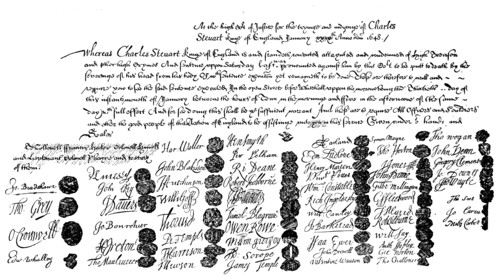 At the high Co of Justice for the tryinge and iudginge of Charles
Steuart Kinge of England January xxixth Anno Dni 1648
Whereas Charles Steuart Kinge of England is and standeth convicted attaynted and condemned of High Treason
and other high Crymes And sentence uppon Saturday last was pronounced against him by this Cort to be putt to death by the
severinge of his head from his body Of wch sentence execucon yet remayneth to be done These are therefore to will and
require you to see the said sentence executed In the open Streete before Whitehall uppon the morrowe being the Thirtieth day of
this instante moneth of January betweene the houres of Tenn in the morninge and Five in the afternoone of the same
day wth full effect And for soe doing this shall be your sufficient warrant And these are to require All Officers and Souldiers
and other the good people of this Nation of England to be assistinge unto you in this service Given under our hands and
Seales
To Colonell Francis Hacker Colonell Huncks
and Lieutenant Colonell Phayre and to every
of them
Jo Bradshawe
Tho Grey
O Cromwell
Edw Whalley
M Livesey
John Okey
J Danvers
Jo Bourchier
H Ireton
Tho Mauleverer
Har Waller
John Blakiston
J Hutchinson
Willi Goff
T Pride
P Temple
T Harrison
J Hewson
Hen Smyth
Per Pelham
Ri Deane
Robert Tichborne
H Edwardes
Daniel Blagrave
Owen Rowe
Willm Purefoy
Ad Scrope
James Temple
A Garland
Edm Ludlowe
Henry Marten
Vinct Potter
Wm Constable
Rich Ingoldesby
Will Cawley
Jo Barkstead
Isaa Ewer
John Dixwell
Valentine Wauton
Symon Mayne
Tho Horton
J Jones
John Penne
Gilbt Millington
G Fleetwood
J Alured
Robt Lilburne
Will Say
Anth Stapley
Gre Norton
Tho Challoner
Tho Wogan
John Venn
Gregory Clement
Jo Downes
Tho Wayte
Tho Scot
Jo Carew
Miles Corbet